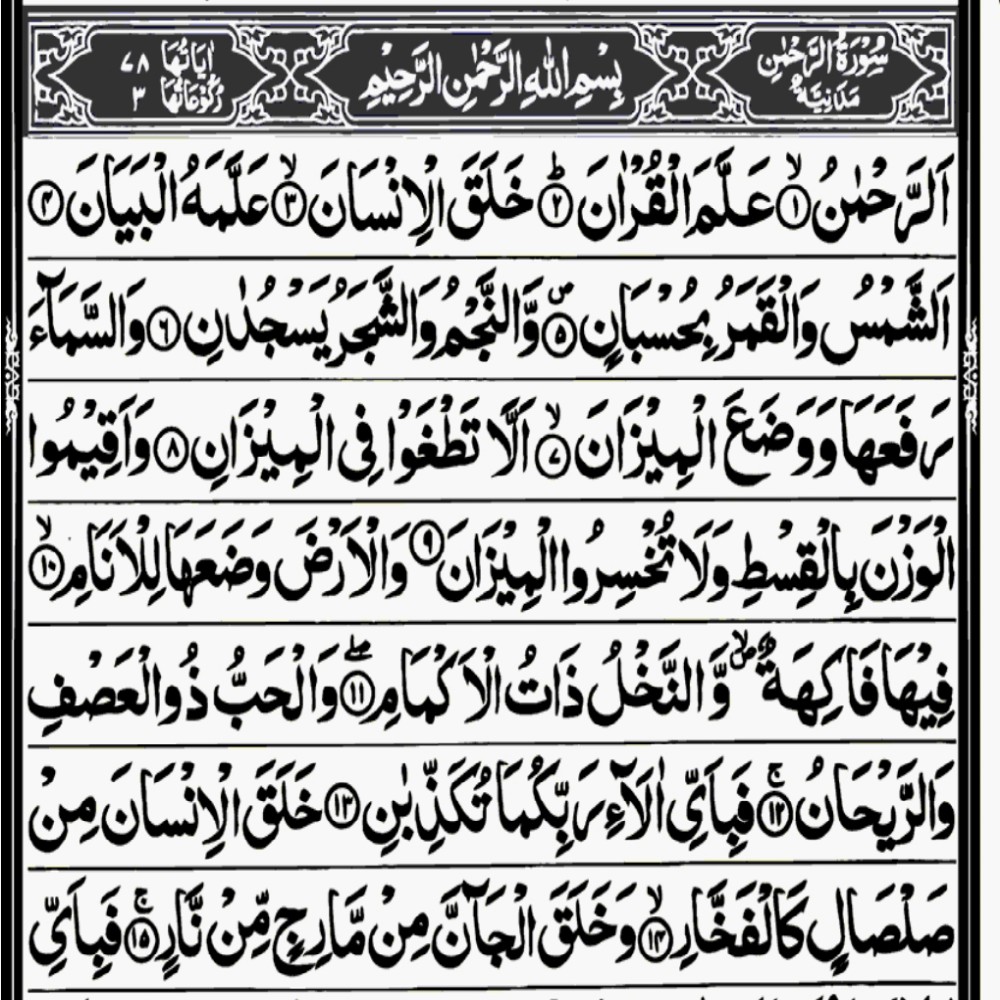 سُوْرَةُ الرَّحْمٰنِ مَدَنِيَّةٌ بِسْمِ اللّٰهِ الرَّحْمٰنِ الرَّحِيْمِ اٰيَاتُهَا ٧٨ رُكُوْعَاتُهَا ٣
اَلرَّحْمٰنُ ۙ﴿١﴾ عَلَّمَ الْقُرْاٰنَ ؕ﴿٢﴾ خَلَقَ الْاِنْسَانَ ۙ﴿٣﴾ عَلَّمَهُ الْبَيَانَ ﴿۴﴾
اَلشَّمْسُ وَالْقَمَرُ بِحُسْبَانٍ ۪﴿۵﴾ وَّالنَّجْمُ وَالشَّجَرُ يَسْجُدٰنِ ﴿٦﴾ وَالسَّمَآءَ
رَفَعَهَا وَوَضَعَ الْمِيْزَانَ ۙ﴿٧﴾ اَلَّا تَطْغَوْا فِى الْمِيْزَانِ ﴿٨﴾ وَاَقِيْمُوا
الْوَزْنَ بِالْقِسْطِ وَلَا تُخْسِرُوا الْمِيْزَانَ ﴿٩﴾ وَالْاَرْضَ وَضَعَهَا لِلْاَنَامِ ۙ﴿١٠﴾
فِيْهَا فَاكِهَةٌ ۪ۙ وَّالنَّخْلُ ذَاتُ الْاَكْمَامِ ۖ﴿١١﴾ وَالْحَبُّ ذُو الْعَصْفِ
وَالرَّيْحَانُ ۚ﴿١٢﴾ فَبِاَىِّ اٰلَآءِ رَبِّكُمَا تُكَذِّبٰنِ ﴿١٣﴾ خَلَقَ الْاِنْسَانَ مِنْ
صَلْصَالٍ كَالْفَخَّارِ ۙ﴿١۴﴾ وَخَلَقَ الْجَآنَّ مِنْ مَّارِجٍ مِّنْ نَّارٍ ۚ﴿١۵﴾ فَبِاَىِّ